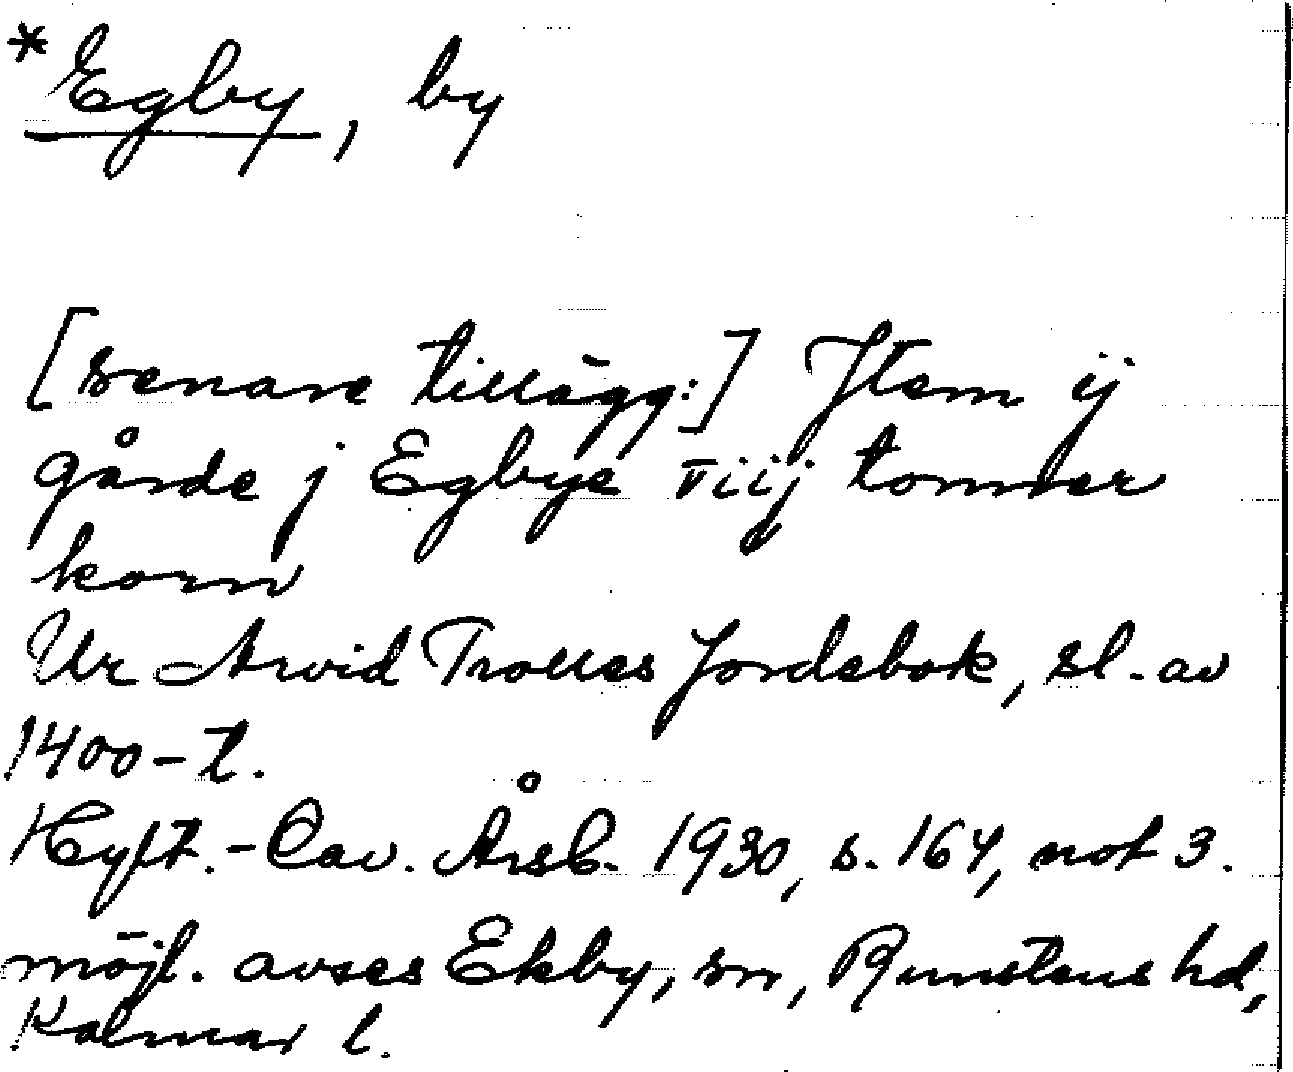 *Egby, by
[senare tillägg:] Item ij
gårde j Egbye viij tonner
korn
Ur Arvid Trolles Jordebok, sl. av
1400-t.
Hylt.-Cav. Årsb. 1930, s. 164, not 3.
möjl. avses Ekby, sn, Runstens hd,
Kalmar l.